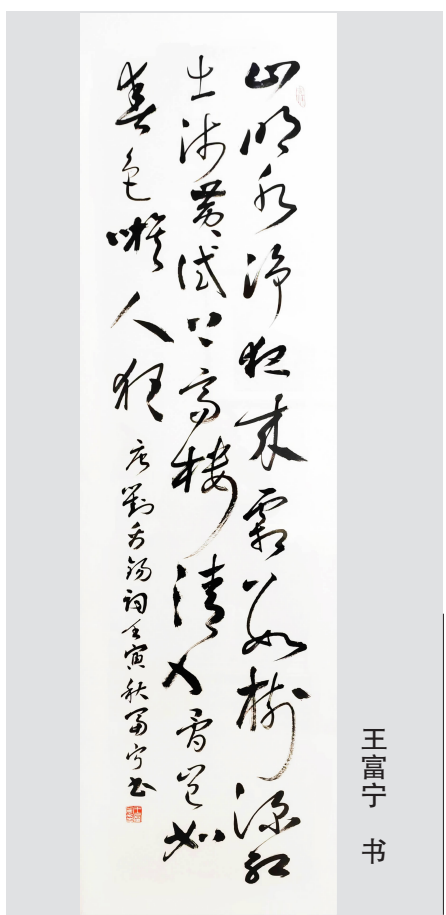 山明水净夜来霜数树深红
出浅黄试上高楼清入骨岂如
春色嗾人狂
唐劉禹锡词壬寅秋富宁书
王富宁 书